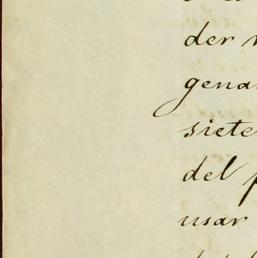 der
gena
siete
del p
usar